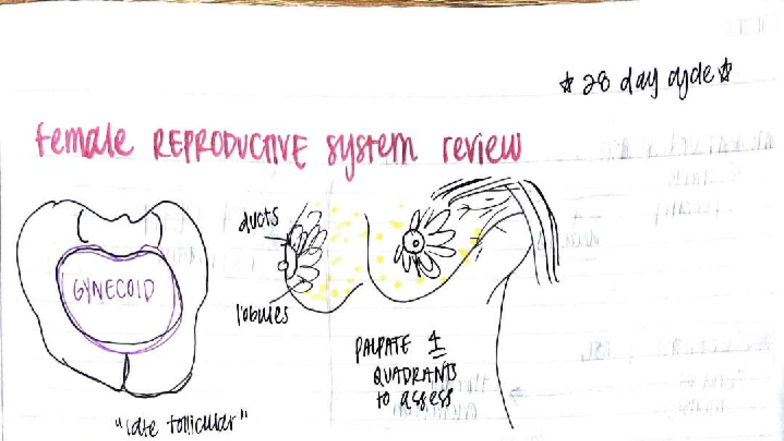 ☆ 28 day cycle ☆
female REPRODUCTIVE system review
ducts
GYNECOID
lobules
PALPATE 4
QUADRANTS
to assess
"late follicular"